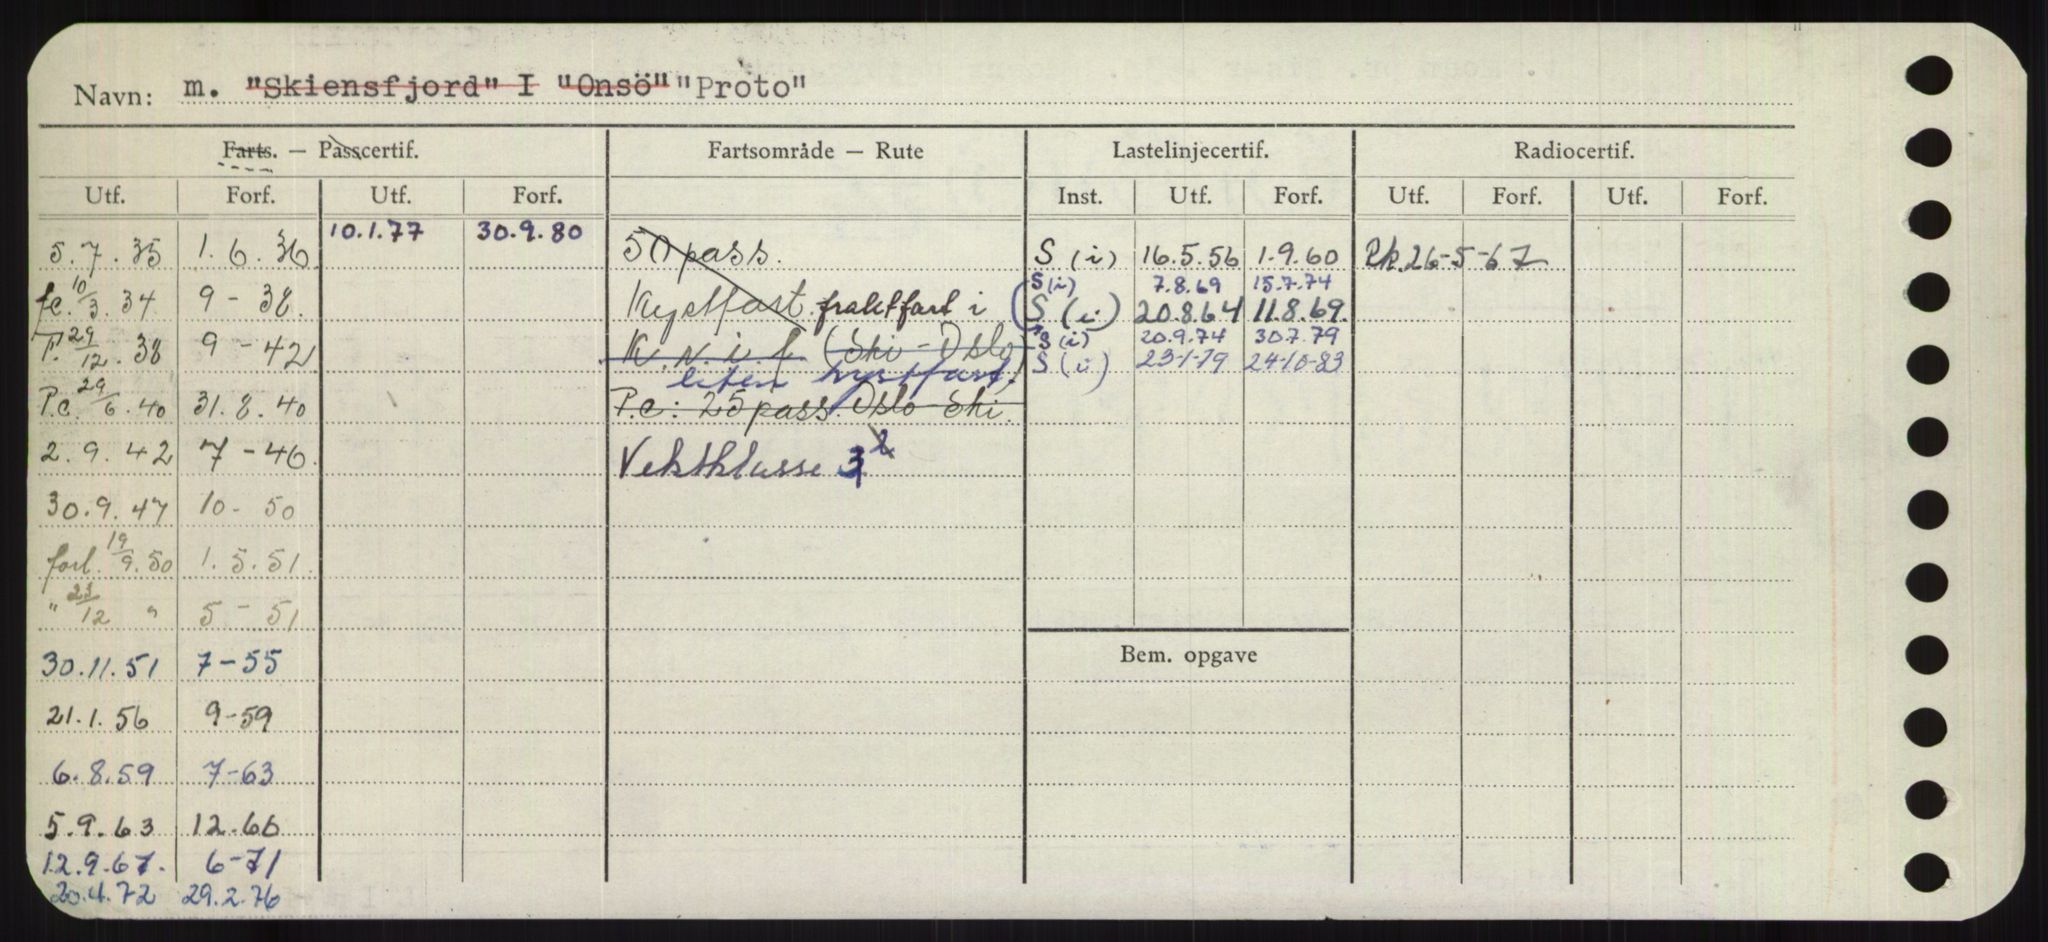 Navn: m. "Skiensfjord" I "Onsö" "Proto"
Farts. — Passcertif. Fartsområde — Rute Lastelinjecertif. Radiocertif.
Utf. Forf. Utf. Forf. Inst. Utf. Forf. Utf. Forf. Utf. Forf.
10.1.77 30.9.80
5.7.35 1.6.36 50 pass. S (i) 16.5.56 1.9.60 26-5-67
S (i) 7.8.69 15.7.74
10/3.34 9-38. Kystfart fraktfart i S (i) 20.8.64 11.8.69.
S (i) 20.9.74 30.7.79
F. 29/12.38 9-42 K.N.i.f. (Ski-Oslo) S (i) 23-1-79 24-10-83
liten kystfart.
P.c. 29/6.40 31.8.40 P.c: 25 pass. Oslo-Ski.
2.9.42 7-46. Vektklasse 3 2
30.9.47 10-50
forl. 19/9.50 1.5.51.
" 23/12 " 5-51
Bem. opgave
30.11.51 7-55
21.1.56 9-59
6.8.59 7-63
5.9.63 12.66
12.9.67. 6-71
20.4.72 29.2.76